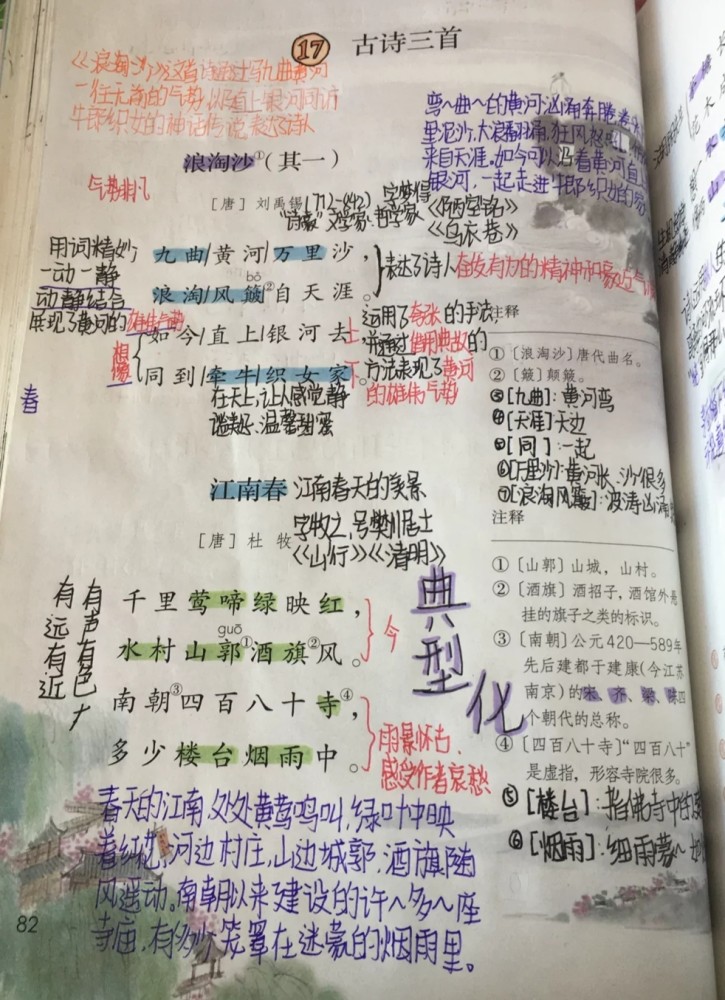 17 古诗三首
《浪淘沙》这首诗通过写九曲黄河
一往无前的气势,以及直上银河同访
牛郎织女的神话传说,表达了诗人
弯~曲~的黄河汹涌奔腾卷
里泥沙,大浪翻涌,狂风怒
来自天涯。如今可以沿着黄河直上
银河,一起走进牛郎织女的家
浪淘沙①(其一)
气势非凡
[唐] 刘禹锡 (772-842) 字梦得
"诗豪"文学家、哲学家
《陋室铭》
《乌衣巷》
用词精妙
一动一静
动静结合
展现了黄河的雄伟气势
九曲/黄河/万里沙,
bǒ
浪淘/风簸②自天涯。
如今/直上/银河去
同到/牵牛/织女家。
表达了诗人奋发有力的精神和豪迈气
想像
上
下
运用了夸张的手法,
并通过借用典故的
方法表现了黄河
的雄伟气势
在天上,让人感觉静
谧美好、温馨甜蜜
春
注释
①〔浪淘沙〕唐代曲名。
②〔簸〕颠簸。
③[九曲]:黄河弯
④[天涯]天边
⑤[同]:一起
⑥[万里沙]:黄河长、沙很多
⑦[浪淘风簸]:波涛汹涌
江南春 江南春天的美景
[唐] 杜牧 字牧之,号樊川居士
《山行》《清明》
有声有色
有远有近
千里莺啼绿映红,
guō
水村山郭①酒旗②风。
南朝③四百八十寺④,
多少楼台烟雨中。
今
雨景怀古、
感受作者哀愁
典型化
注释
①〔山郭〕山城,山村。
②〔酒旗〕酒招子,酒馆外悬
挂的旗子之类的标识。
③〔南朝〕公元420—589年
先后建都于建康(今江苏
南京)的宋、齐、梁、陈四
个朝代的总称。
④〔四百八十寺〕"四百八十"
是虚指,形容寺院很多。
⑤[楼台]:指佛寺中的
⑥[烟雨]:细雨蒙~
春天的江南,处处黄莺鸣叫,绿叶中映
着红花,河边村庄,山边城郭,酒旗随
风遥动。南朝以来建设的许~多~座
寺庙,有多少笼罩在迷蒙的烟雨里。
82